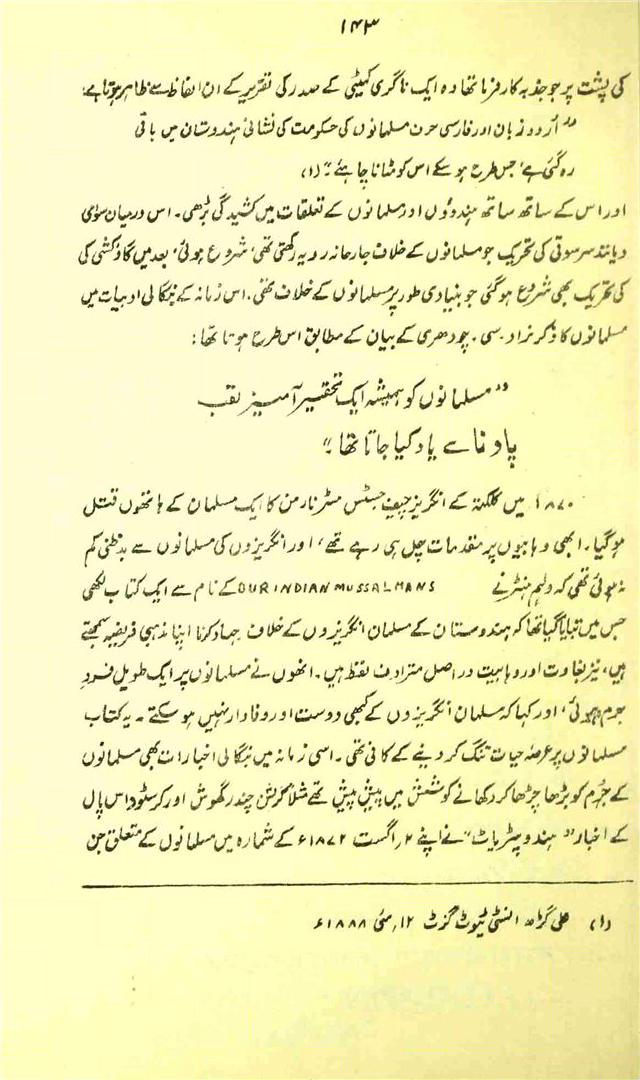 ۱۴۳
کی پشت پر جو جذبہ کار فرما تھا وہ ایک ناگری کمیٹی کے صدر کی تقریر کے ان الفاظ سے ظاہر ہوتا ہے:
"اُردو زبان اور فارسی حرف مسلمانوں کی حکومت کی نشانی ہندوستان میں باقی
رہ گئی ہے، جس طرح ہو سکے اس کو مٹانا چاہئے۔" (۱)
اور اس کے ساتھ ساتھ ہندوؤں اور مسلمانوں کے تعلقات میں کشیدگی بڑھی۔ اس درمیان سوامی
دیانند سرسوتی کی تحریک جو مسلمانوں کے خلاف جارحانہ رویہ رکھتی تھی، شروع ہوئی، بعد میں گاؤکشی کی
کی تحریک بھی شروع ہو گئی جو بنیادی طور پر مسلمانوں کے خلاف تھی۔ اس زمانہ کے بنگالی ادبیات میں
مسلمانوں کا ذکر نراد۔ سی۔ چودھری کے بیان کے مطابق اس طرح ہوتا تھا:
"مسلمانوں کو ہمیشہ ایک تحقیر آمیز لقب
پاونا سے یاد کیا جاتا تھا۔"
۱۸۷۰ میں کلکتہ کے انگریز چیف جسٹس مسٹر نارمن کا ایک مسلمان کے ہاتھوں قتل
ہو گیا۔ ابھی وہابیوں پر مقدمات چل ہی رہے تھے، اور انگریزوں کی مسلمانوں سے بدظنی کم
نہ ہوئی تھی کہ ولیم ہنٹر نے OUR INDIAN MUSSALMANS کے نام سے ایک کتاب لکھی
جس میں بتایا گیا تھا کہ ہندوستان کے مسلمان انگریزوں کے خلاف جہاد کرنا اپنا مذہبی فریضہ سمجھتے
ہیں، نیز بغاوت اور وہابیت دراصل مترادف لفظ ہیں۔ انھوں نے مسلمانوں پر ایک طویل فرد
جرم لگائی، اور کہا کہ مسلمان انگریزوں کے کبھی دوست اور وفادار نہیں ہو سکتے۔ یہ کتاب
مسلمانوں پر عرصہ حیات تنگ کر دینے کے کافی تھی۔ اسی زمانہ میں بنگالی اخبارات بھی مسلمانوں
کے جُرم کو بڑھا چڑھا کر دکھانے کو کشش میں پیش پیش تھے مثلاً کرشن چندر گھوش اور کرسٹوداس پال
کے اخبار "ہندو پیٹریاٹ" نے اپنے ۲؍ اگست ۱۸۷۲ء کے شمارہ میں مسلمانوں کے متعلق جن
(۱) علی گڑھ انسٹی ٹیوٹ گزٹ ۱۲؍ مئی ۱۸۸۸ء